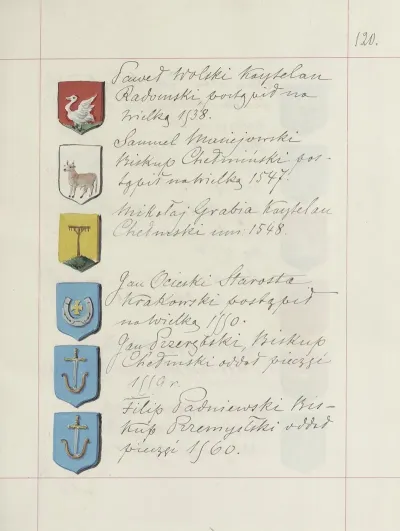 120.
Paweł Wolski Kasztelan
Radomski, postąpił na
wielką 1538.
Samuel Maciejowski
Biskup Chełmiński pos-
tąpił na wielką 1547.
Mikołaj Grabia Kasztelan
Chełmski um: 1548.
Jan Ocieski Starosta
Krakowski postąpił
na wielką 1550.
Jan Przerębski, Biskup
Chełmski oddał pieczęć
1559 r.
Filip Padniewski Bis-
kup Przemyślski oddał
pieczęć 1560.